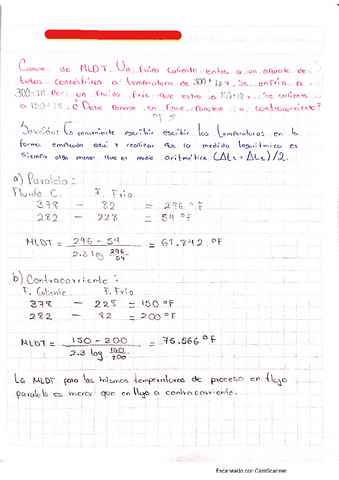 Caluve de MLDT. Un fluido caliente entra a un aparato de
tubos concéntricos a temperatura de 300+78 F, se enfría a
300-18 Por un fluido frío que entra a se calienta
a 150+78. ¿Debe Ponerse en flujo Paralelo o contracorriente?
°F
Solución: Es conveniente escribir escribir las temperaturas en la
forma empleada aquí y realizar que la medida logarítmica es
siempre algo menor que es medio aritmética (ΔLc + ΔLc)/2.
a) Paralelo:
Fluido C. F. Frio
378 - 82 = 296 °F
282 - 228 = 54 °F
MLDT = 296 - 54 / 2.3 log 296/54 = 61.842 °F
b) Contracorriente:
F. Caliente F. Frio
378 - 228 = 150 °F
282 - 82 = 200 °F
MLDT = 150 - 200 / 2.3 log 150/200 = 75.566 °F
La MLDT para las mismas temperaturas de proceso en flujo
paralelo es menor que en flujo a contracorriente.
Escaneado con CamScanner